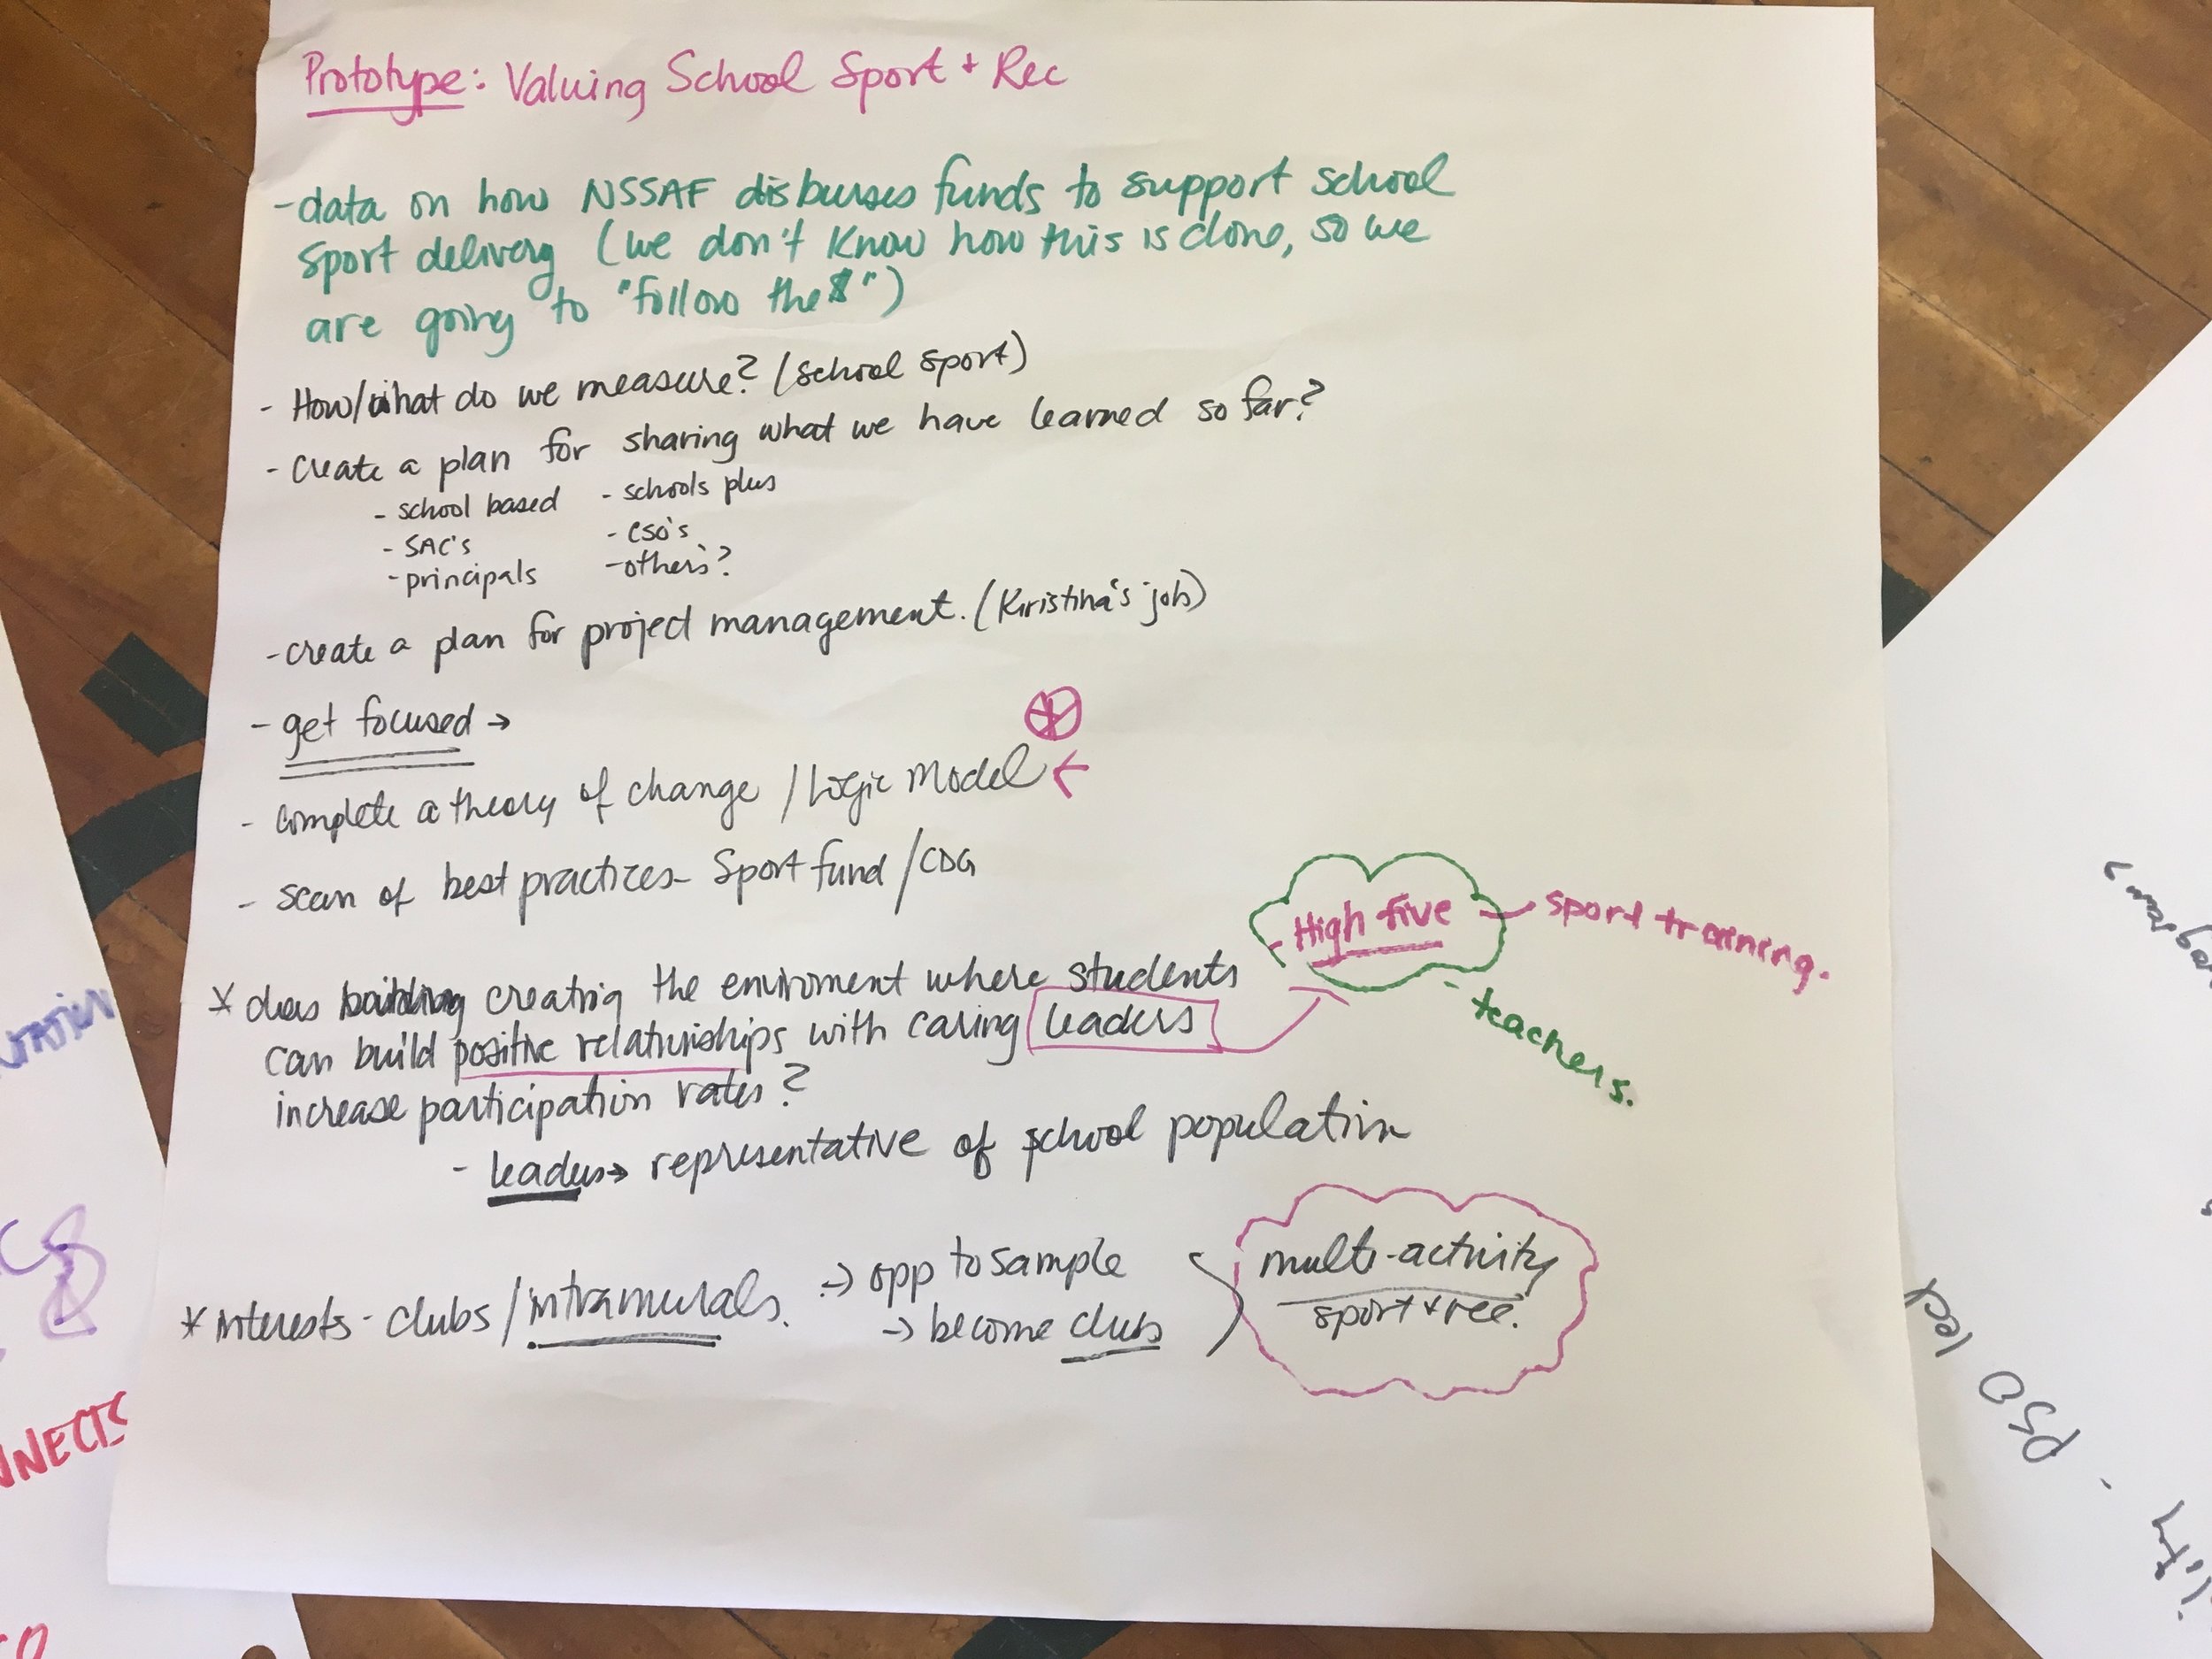 Prototype: Valuing School Sport + Rec
- data on how NSSAF disburses funds to support school
sport delivery (we don't know how this is done, so we
are going to "follow the $")
- How/what do we measure? (school sport)
- create a plan for sharing what we have learned so far?
- school based - schools plus
- SAC's - CSO's
- principals - others?
- create a plan for project management. (Kristina's job)
- get focused →
- complete a theory of change / Logic Model ←
- scan of best practices - Sport fund / CDG
High five - sport training.
- teachers.
* does building creating the enviroment where students
can build positive relationships with caring leaders
increase participation rates?
- leaders → representative of school population
* interests - clubs / intramurals. → opp to sample
→ become clubs
multi-activity
sport + rec.
NNECTS
PSO